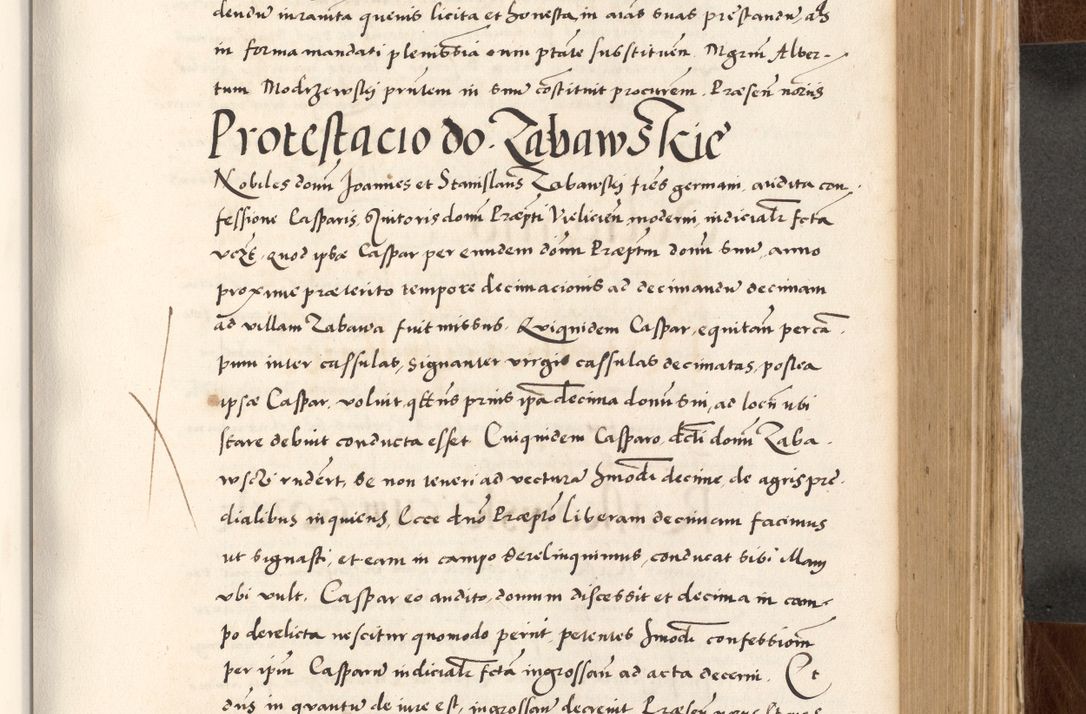 dendũ iuramta quevis licita et honesta, in aĩas suas prestandũ ab
in forma mandati plenissia cum ptãte substituen̄. Mgrm̄ Alber-
tum Modrzewskj pñtem in suũ cõstituit procurem. Præsen̄ noriis
Protestacio do. Zabawskie
Nobiles domī Joannes et Stanislaus Zabawskj frẽs germani, audita con-
fessione Casparis, domī Præpti Vielicien̄, moderni, iudicialr̄ fctã
vcz, quod ipse Caspar per eundem dõm Præptm domī suũ, anno
proxime præterito tempore decimacionis ad decimandũ decimam
ad villam Zabawa fuit missus. Quiquidem Caspar, equitan̄ per cã-
pum inter cassulas, signanter virgis cassulas decimatas, postea
ipse Caspar, voluit, q̃tñs prius ipã decima domī sui, ad locũ ubi
stare debuit conducta esset. Cuiquidem Casparo, dcti domī Zaba-
wsczi rñdert, se non teneri ad vecturã hmõdi decime, de agris pre-
dialibus inquiens, Ecce dño Præpto liberam decimam facimus
ut signasti, et eam in campo derelinquimus, conducat sibi illam
ubi vult. Caspar eo audito, domum discessit et decima in cam-
po derelicta nescitur quomodo periit, petentes hmõdi confessionẽ
per ipm̄ Casparũ iudicialr̄ fctã ingrossari ad acta decerni. Et
dñs in quantũ de iure est, ingrossari decrevit. Præsen̄